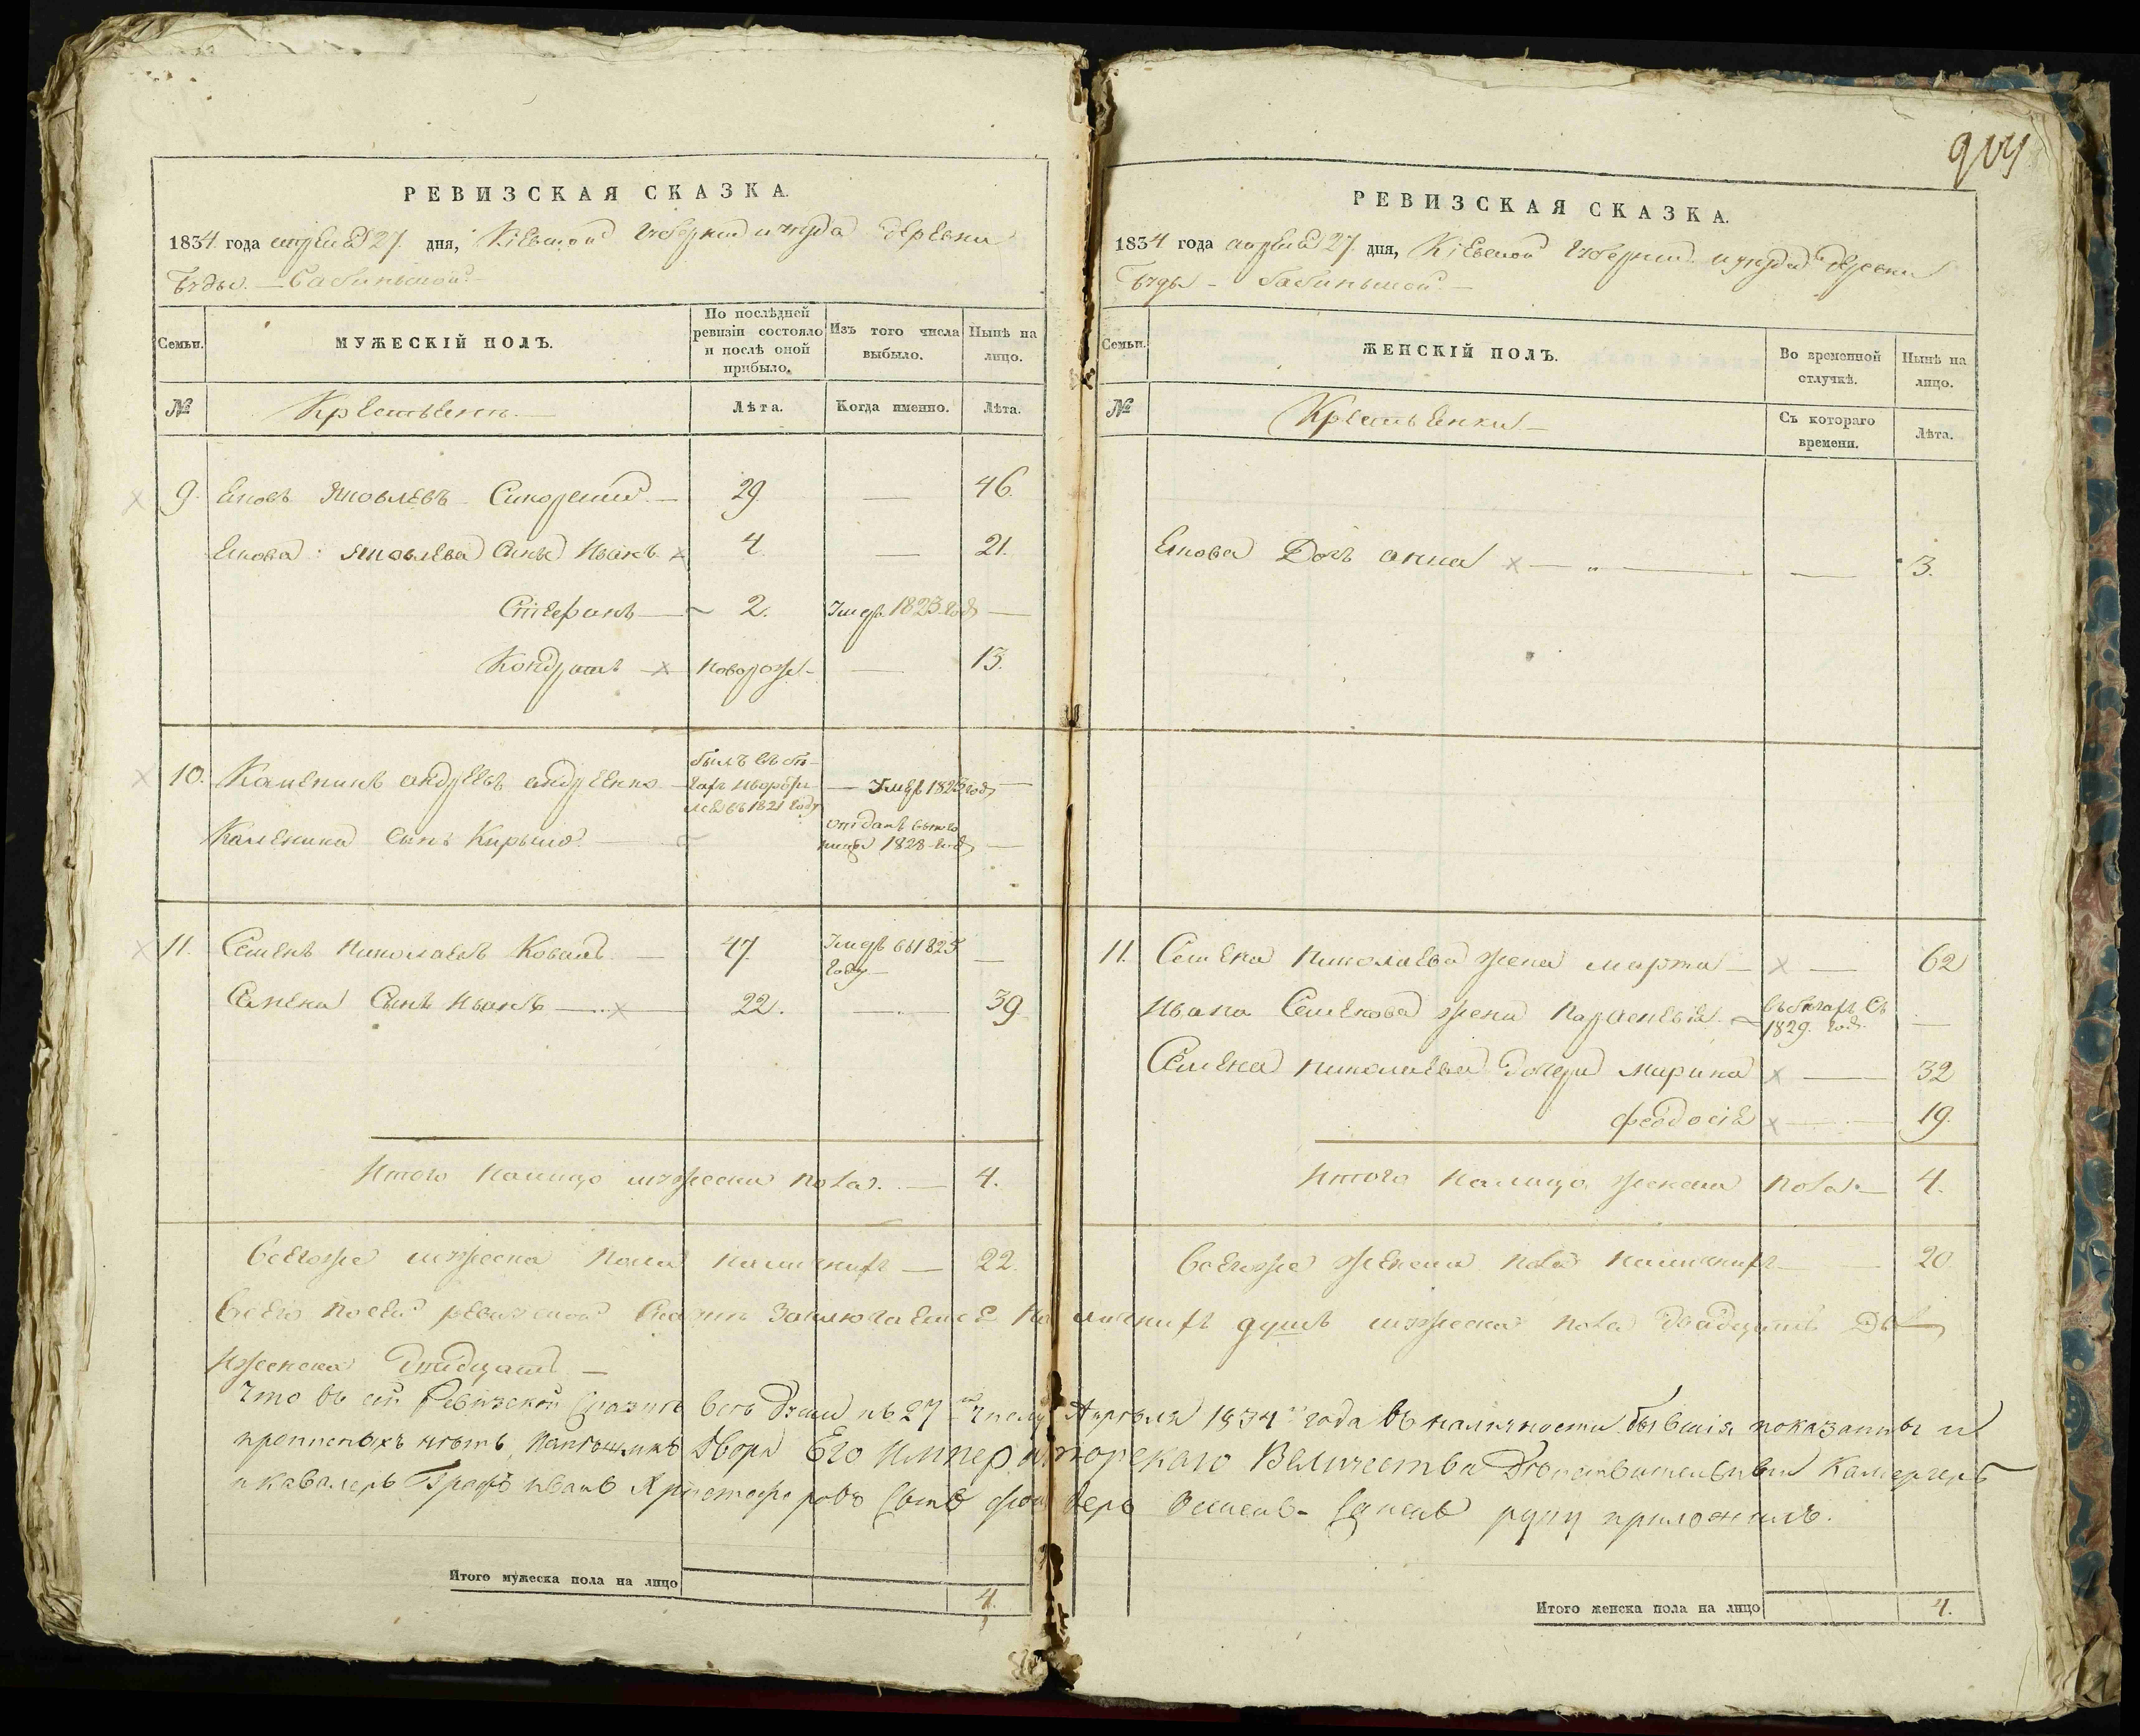 РЕВИЗСКАЯ СКАЗКА.
1834 года апреля 27 дня, Кіевской Губерніи и уезда деревни
Буды Бабинской
Семьи.
МУЖЕСКІЙ ПОЛЪ.
По послѣдней ревизіи состояло и послѣ оной прибыло.
Изъ того числа выбыло.
Нынѣ на лицо.
№
Крестьяни
Лѣта.
Когда именно.
Лѣта.
9. Яковъ Яковлевъ Сикорский 29 46.
Якова Яковлева сынъ Иванъ 4. 21.
Стефанъ 2. Умеръ 1823 года
Кондратъ новорож. 13.
10. Каленикъ андреевъ андреенко былъ въ бегахъ 1821 году Умеръ
Каленика сынъ Кирыло отданъ 1828 года
11. Семенъ Николаевъ Коваль 47. Умеръ въ 182 году
Семена Сынъ Иванъ 22. 39
Итого налицо мужеска пола. 4.
Всегоже мужеска пола наличнихъ 22.
РЕВИЗСКАЯ СКАЗКА.
1834 года апреля 27. дня, Кіевской Губерніи и уезда деревни
Буды Бабинской
Семьи.
ЖЕНСКІЙ ПОЛЪ.
Во временной отлучкѣ.
Нынѣ на лицо.
№
Крестьянки
Съ котораго времени.
Лѣта.
Якова Дочь анна 3.
11. Семена Николаева жена марта 62
Ивана Семенова жена въ бегахъ съ 1829. года
Семена николаева дочери Марина 32
феодосія 19.
Итого налицо женска пола 4.
Всегоже женска пола наличнихъ 20
Всего посей ревизской Сказки заключается наличнихъ душъ мужеска пола двадцать два
и женска двадцать
Что въ сей Ревизской Сказке все души къ 27 числу Апреля 1834го года въ наличности бывшія показанны и
прописныхъ нетъ, Двора Его Императорскаго Величества Действительный Камергеръ
и кавалеръ Графъ иванъ Христофоровъ Сынъ фон дер Остенъ-Сакенъ руку приложилъ.
Итого мужеска пола на лицо 4.
Итого женска пола на лицо 4.